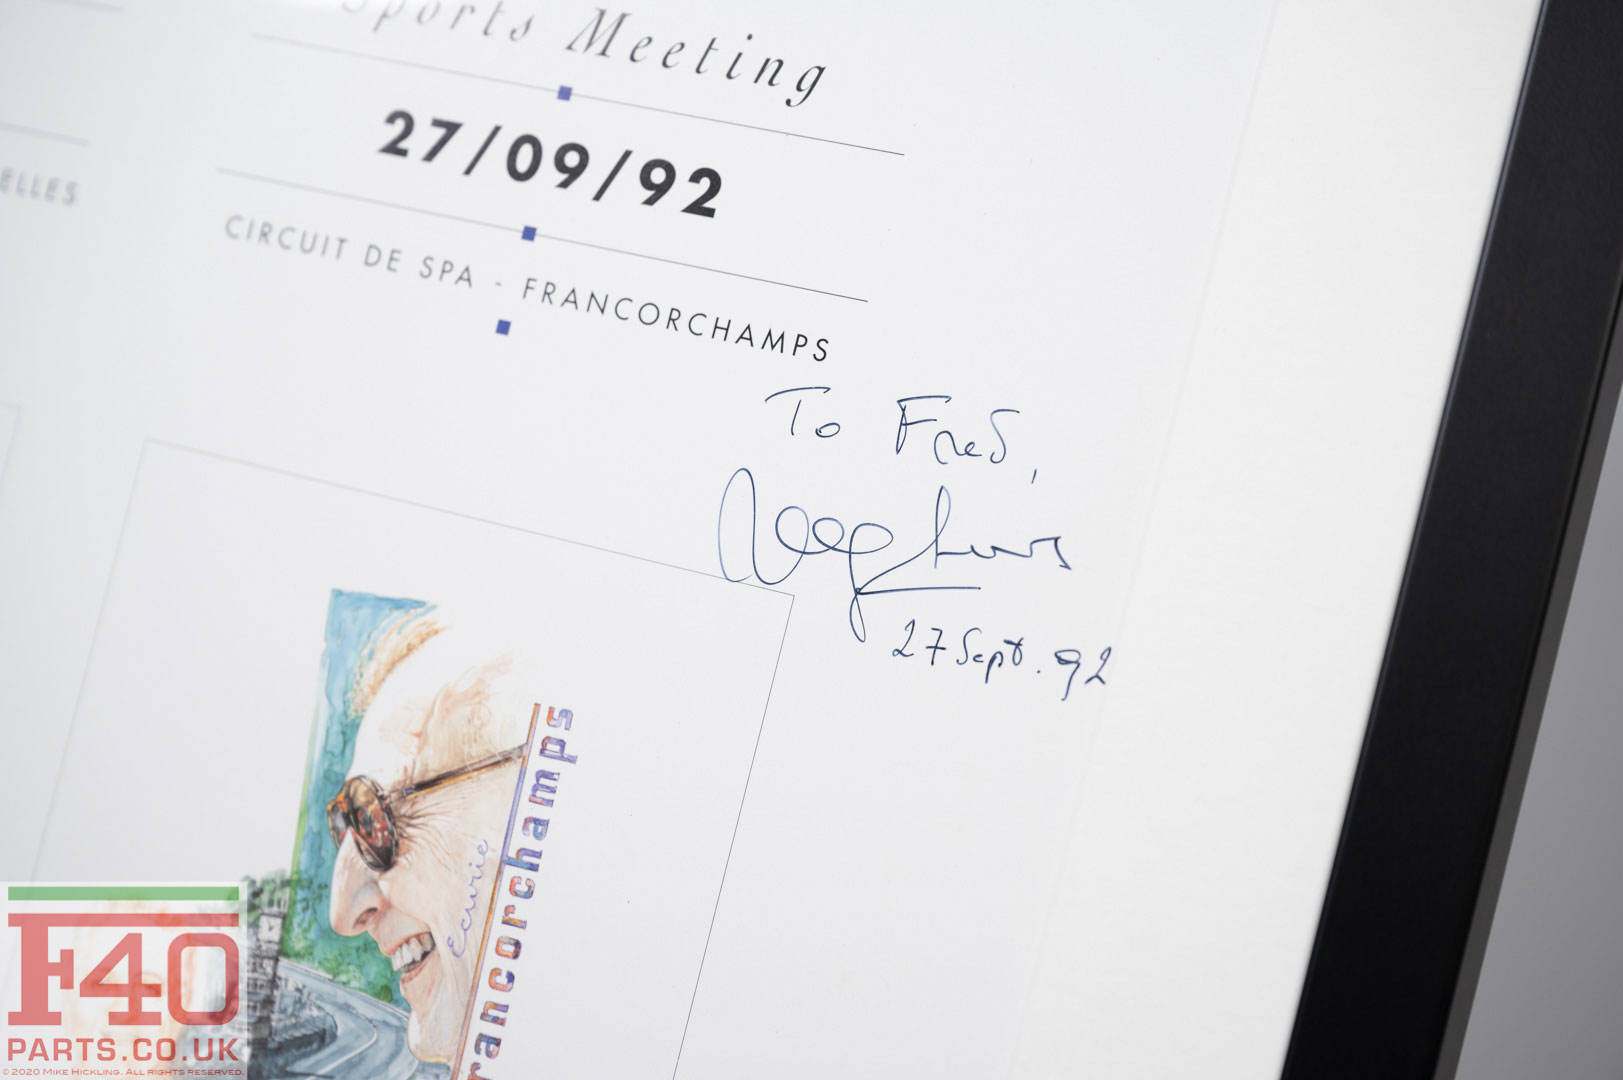 Sports Meeting
27/09/92
ELLES
CIRCUIT DE SPA - FRANCORCHAMPS
To Fred,
27 Sept. 92
Ecurie
rancorchamps
F40
PARTS.CO.UK
© 2020 Mike Hickling. All rights reserved.